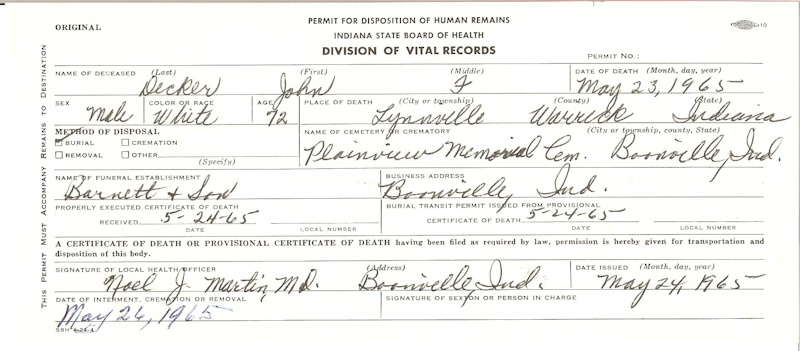 ORIGINAL
PERMIT FOR DISPOSITION OF HUMAN REMAINS
INDIANA STATE BOARD OF HEALTH
DIVISION OF VITAL RECORDS
10
PERMIT NO.:
THIS PERMIT MUST ACCOMPANY REMAINS TO DESTINATION
NAME OF DECEASED (Last) (First) (Middle) DATE OF DEATH (Month, day, year)
Decker John F May 23, 1965
SEX COLOR OR RACE AGE PLACE OF DEATH (City or township) (County) (State)
Male White 72 Lynnville Warrick Indiana
METHOD OF DISPOSAL NAME OF CEMETERY OR CREMATORY (City or township, county, State)
BURIAL CREMATION
REMOVAL OTHER (Specify)
Plainview Memorial Cem. Boonville, Ind.
NAME OF FUNERAL ESTABLISHMENT BUSINESS ADDRESS
Barnett & Son Boonville, Ind.
PROPERLY EXECUTED CERTIFICATE OF DEATH BURIAL TRANSIT PERMIT ISSUED FROM PROVISIONAL
RECEIVED 5-24-65 CERTIFICATE OF DEATH 5-24-65
DATE LOCAL NUMBER DATE LOCAL NUMBER
A CERTIFICATE OF DEATH OR PROVISIONAL CERTIFICATE OF DEATH having been filed as required by law, permission is hereby given for transportation and
disposition of this body.
SIGNATURE OF LOCAL HEALTH OFFICER (Address) DATE ISSUED (Month, day, year)
Noel J. Martin, MD. Boonville, Ind. May 24, 1965
DATE OF INTERMENT, CREMATION OR REMOVAL SIGNATURE OF SEXTON OR PERSON IN CHARGE
May 26, 1965
SBH 6-24-4